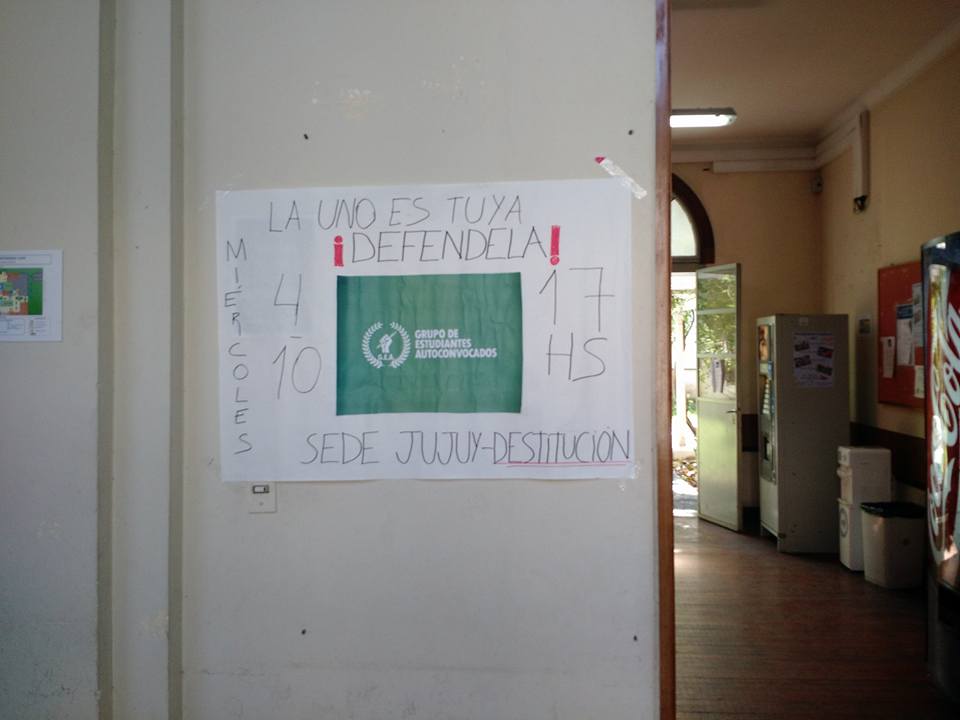 LA UNO ES TUYA
¡DEFENDELA!
MIÉRCOLES
4
10
G.E.A.
GRUPO DE
ESTUDIANTES
AUTOCONVOCADOS
17
HS
SEDE JUJUY-DESTITUCIÓN
Coca-Cola